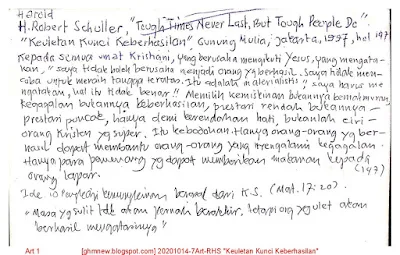 Harold
H. Robert Schuller, "Tough Times Never Last, But Tough People Do"
"Keuletan Kunci Keberhasilan", Gunung Mulia, Jakarta, 1997, hal 197
Kepada semua umat Kristiani, yang berusaha mengikuti Yesus, yang mengata-
kan, "saya tidak boleh berusaha menjadi orang yg berhasil. Saya tidak men-
coba untuk meraih tangga teratas. Itu adalah", saya harus me-
ngatakan, hal itu tidak benar!! Memilih kemiskinan bukannya kemakmuran,
kegagalan bukannya keberhasilan, prestasi rendah bukannya
prestasi puncak, hanya demi kerendahan hati, bukanlah ciri-
orang Kristen yg super. Itu kebodohan. Hanya orang-orang yg ber-
hasil dapat membantu orang-orang yang mengalami kegagalan.
Hanya para yg dapat memberikan makanan kepada
orang lapar. (197)
Ide 10 kemungkinan berasal dari K.S. (Mat. 17:20).
"Masa yg sulit tdk akan pernah berakhir, tetapi org yg ulet akan
berhasil mengatasinya"
Art 1 [ghmnew.blogspot.com] 20201014-7Art-RHS "Keuletan Kunci Keberhasilan"